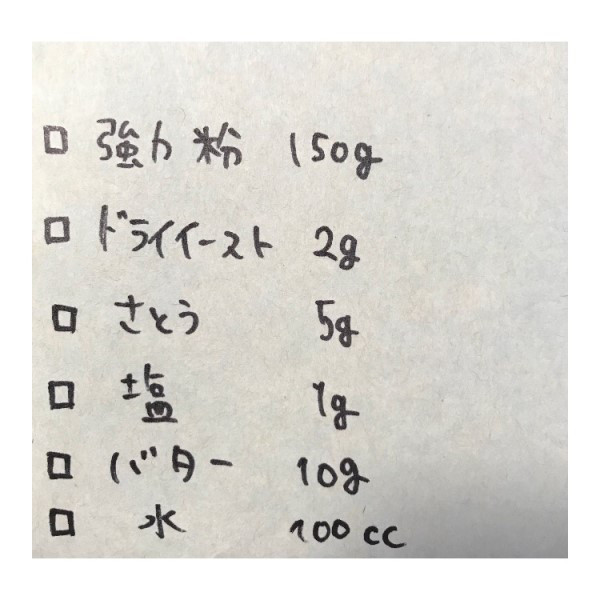 □ 強力粉 150g
□ ドライイースト 2g
□ さとう 5g
□ 塩 1g
□ バター 10g
□ 水 100cc